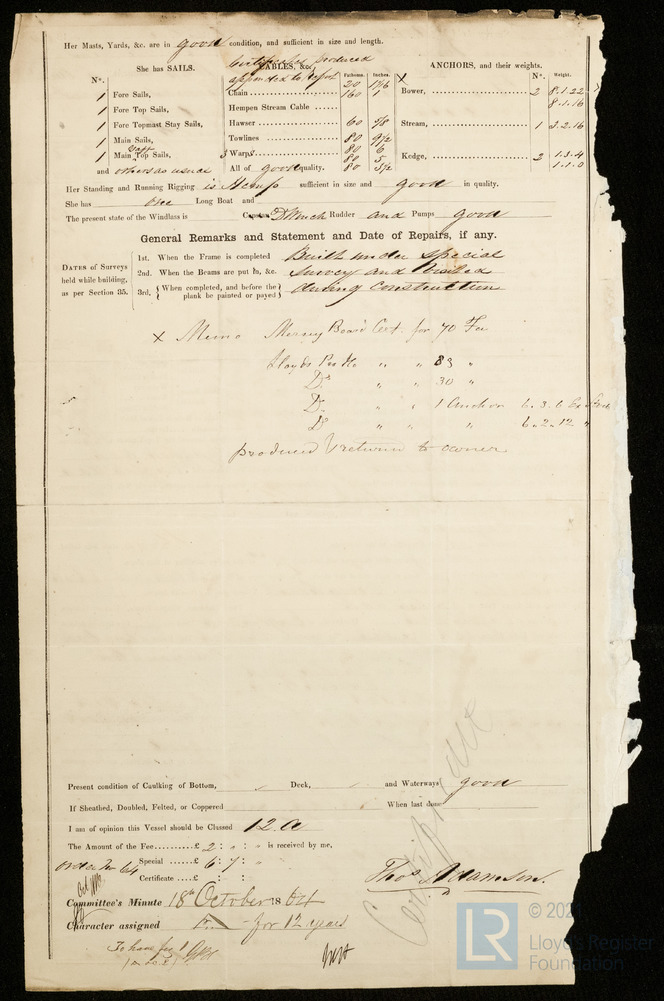 Her Masts, Yards, &c. are in good condition, and sufficient in size and length.
Certificates produced
appended to Report
She has SAILS.
CABLES, &c.
Fathoms. Inches.
ANCHORS, and their weights.
Nº.
Nº. Weight.
1 Fore Sails,
1 Fore Top Sails,
1 Fore Topmast Stay Sails,
1 Main Sails,
1 Main Gaff Top Sails,
and others as usual
20 1 1/16
Chain 160 1
Hempen Stream Cable
Hawser 60 7/8
Towlines 80 9 1/2
3 Warps 80 6
80 5
All of good quality. 80 3 1/2
x
Bower, 2 8.1.22
8.1.16
Stream, 1 3.2.16
Kedge, 2 1.3.4
1.1.0
Her Standing and Running Rigging is Hemp sufficient in size and good in quality.
She has one Long Boat and
The present state of the Windlass is Capstan D Winch Rudder and Pumps good
General Remarks and Statement and Date of Repairs, if any.
DATES of Surveys
held while building,
as per Section 35.
1st. When the Frame is completed Built under special
2nd. When the Beams are put in, &c. survey and visited
3rd. { When completed, and before the plank be painted or payed } during construction
x Memo Mersey Board Cert. for 70 Fm
Lloyds " " 83 "
Do " " 30 "
Do " " 1 Anchor 6.3.6
Do " " " 6.2.12 "
produced & returned to owner
Certificate
Present condition of Caulking of Bottom, Deck, and Waterways good
If Sheathed, Doubled, Felted, or Coppered When last done
I am of opinion this Vessel should be Classed 12 A
The Amount of the Fee £ 2 : " : " is received by me,
Order No 64 Special £ 6 : 7 : "
Certificate £ : :
Thos Adamson.
Committee's Minute 18th October 1864
Character assigned for 12 years
To have
© 202
LR
Lloyd's Register
Foundation